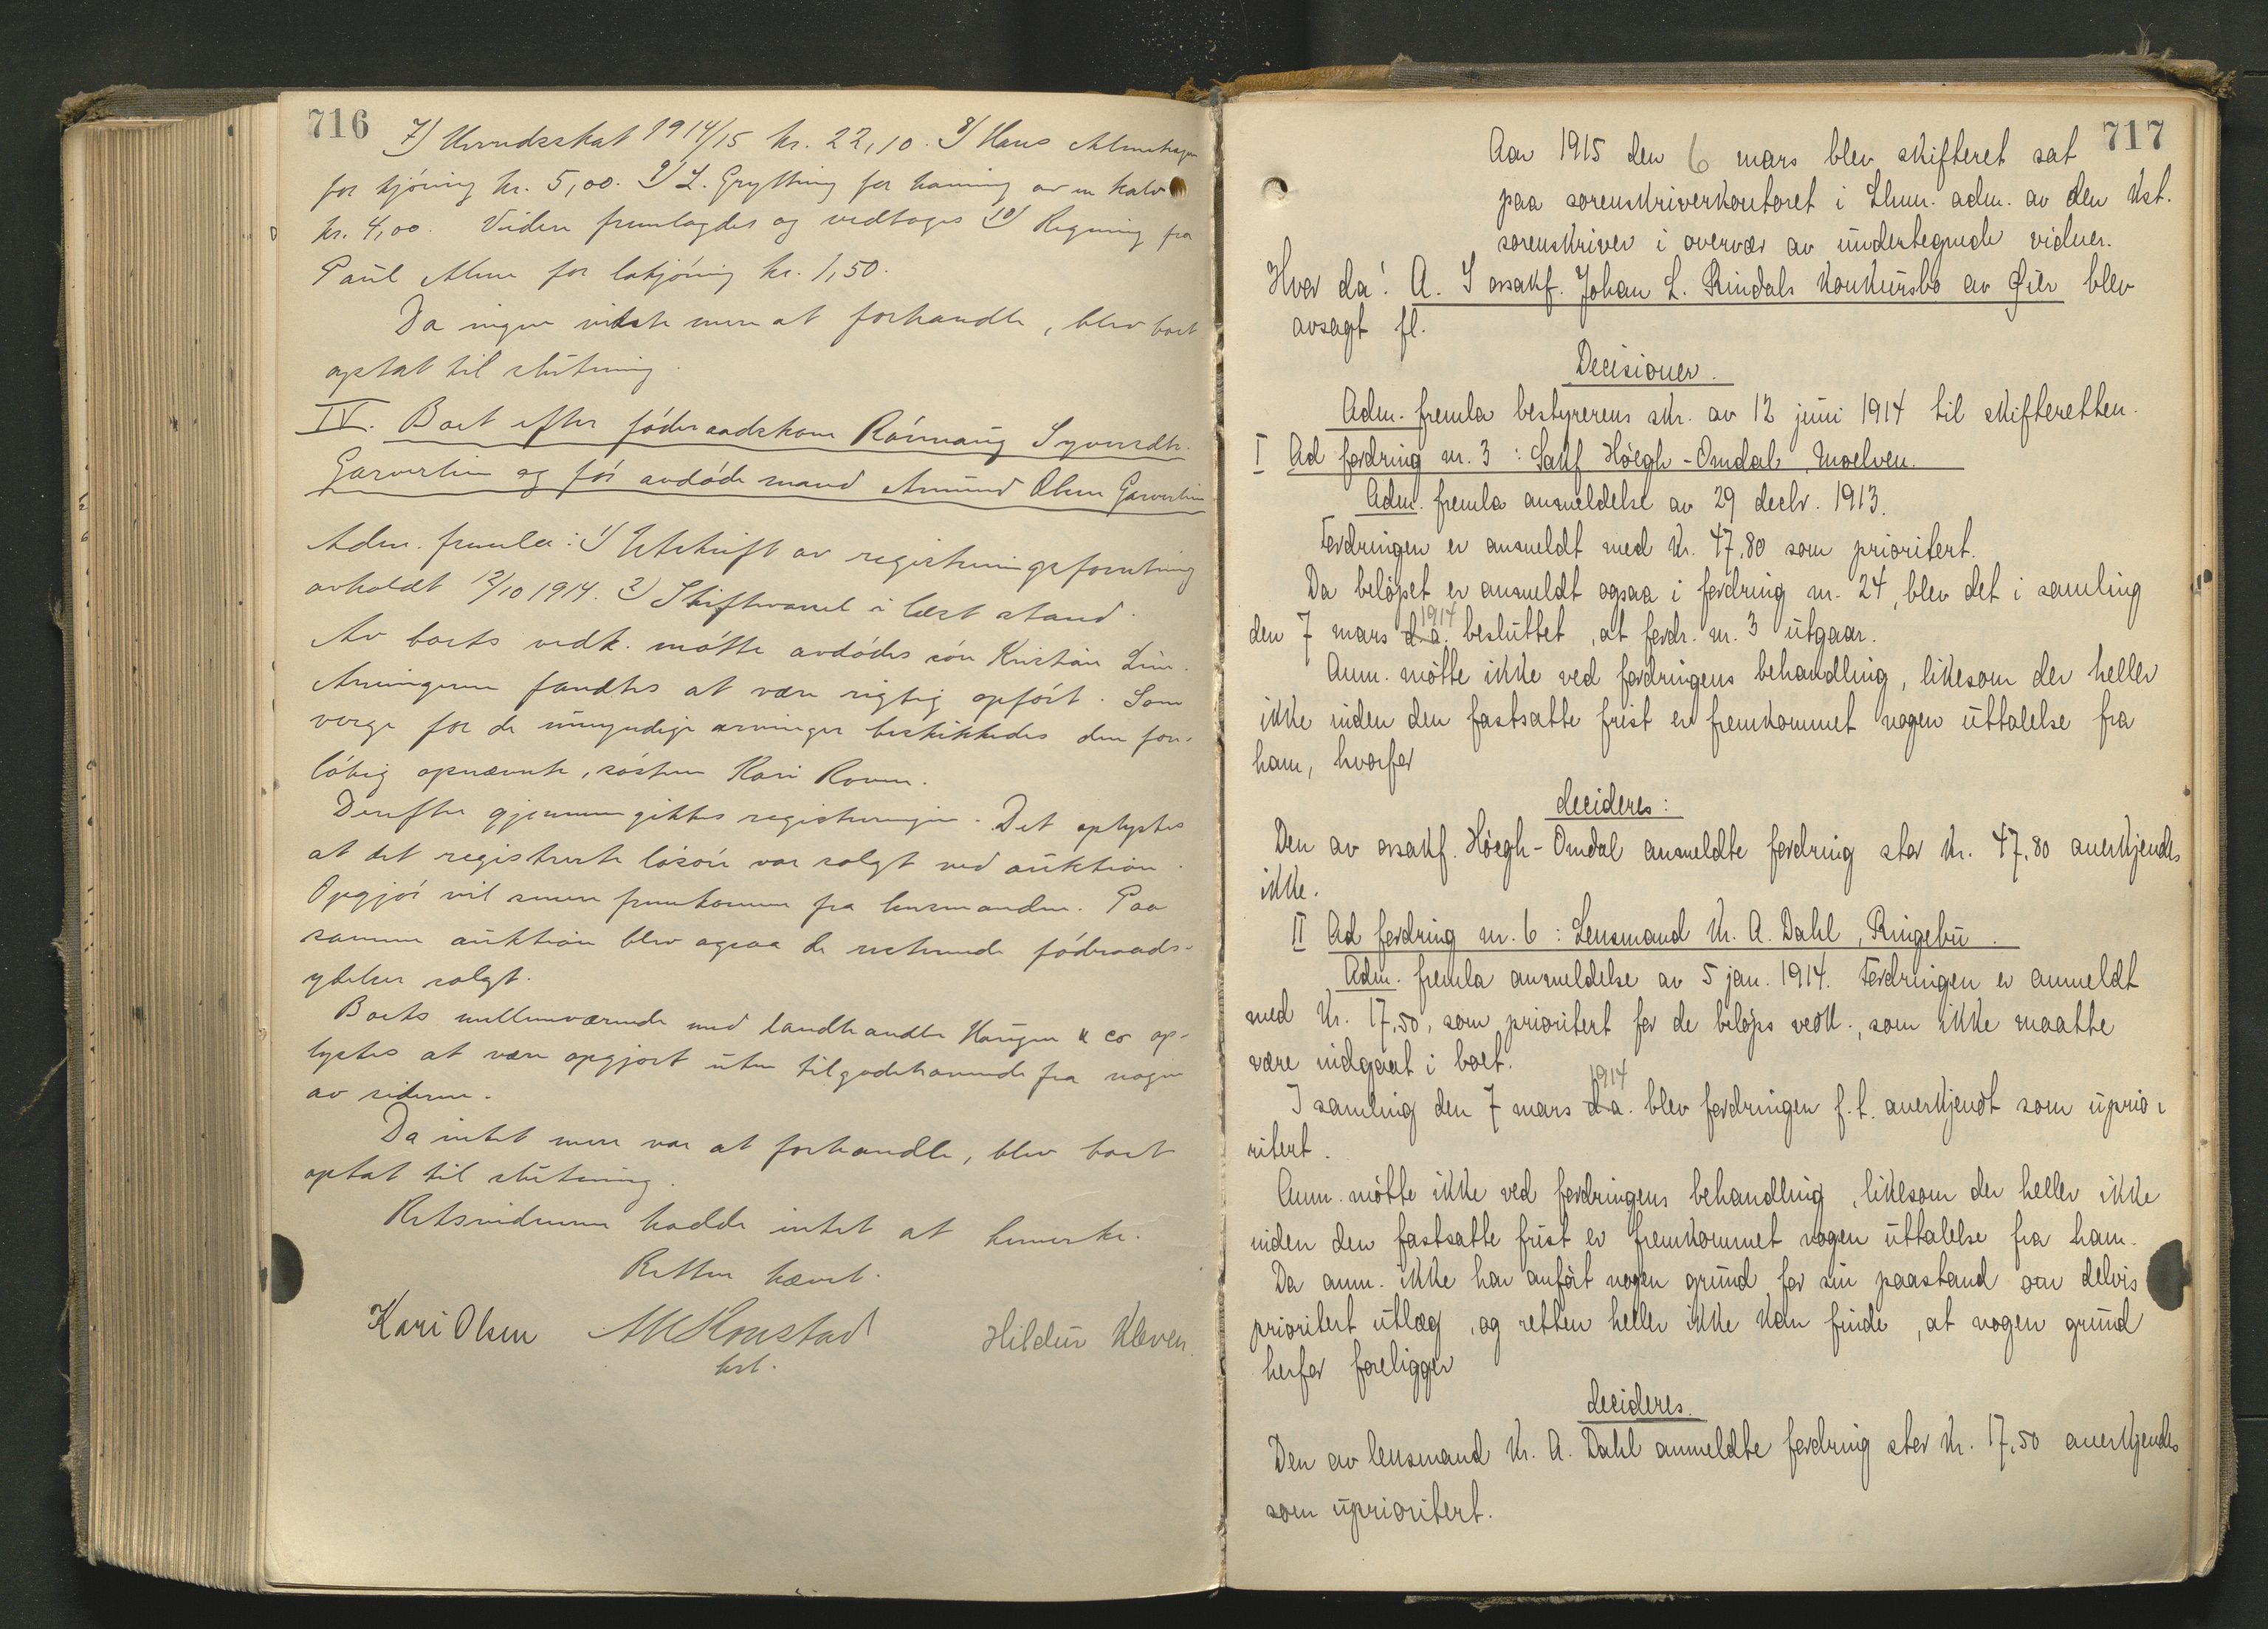 716
7) Herredsskat 1914/15 kr. 22,10. 8) Hans Almehagen
for kjöring kr. 5,00. 9) L. Grytting for havning av en kalv
kr. 4,00. Videre fremlagdes og vedtoges 10) Regning fra
Paul Alme for likjöring kr. 1,50.
Da ingen vidste mere at forhandle, blev boet
optat til slutning.
IV. Boet efter föderaadskone Rönnaug Syversdtr.
Garverlien og för avdöde mand Amund Olsen Garverlien
Adm. fremla: 1) Utskrift av registreringsforretning
avholdt 12/10 1914. 2) Skiftevarsel i læst stand.
Av boets vedk. mötte avdödes sön Kristian Lien.
Arvingerne fandtes at være rigtig opfört. Som
verge for de umyndige arvinger beskikkedes den fore-
löbig opnævnte, söstren Kari Roven.
Derefter gjennemgikkes registreringen. Det oplystes
at det registrerte lösöre var solgt ved auktion.
Opgjör vil senere fremkomme fra lensmanden. Paa
samme auktion blev ogsaa de resterende föderaads-
ydelser solgt.
Boets mellemværende med landhandler Haugen & co op-
lystes at være opgjort uten tilgodehavende fra nogen
av siderne.
Da intet mere var at forhandle, blev boet
optat til slutning.
Retsvidnerne hadde intet at bemerke.
Retten hævet.
Kari Olsen Hildur Kleven.
kst.
717
Aar 1915 den 6 mars blev skifteret sat
paa sorenskriverkontoret i Lhmr. adm. av den kst.
sorenskriver i overvær av undertegnede vidner.
Hvor da: A. I ovsakf. Johan L. Rindals konkursbo av Øier blev
avsagt fl.
Decisioner.
Adm. fremla bestyrerens skr. av 12 juni 1914 til skifteretten.
I Ad fordring nr. 3: Sakf Höegh-Omdal, Moelven.
Adm. fremla anmeldelse av 29 decbr. 1913.
Fordringen er anmeldt med kr. 47,80 som prioritert.
Da belöpet er anmeldt ogsaa i fordring nr. 24, blev det i samling
den 7 mars d.a. 1914 besluttet, at fordr. nr. 3 utgaar.
Anm. mötte ikke ved fordringens behandling, likesom der heller
ikke inden den fastsatte frist er fremkommet nogen uttalelse fra
ham, hvorfor
decideres:
Den av ovsakf. Höegh-Omdal anmeldte fordring stor kr. 47,80 anerkjendes
ikke.
II Ad fordring nr. 6: Lensmand Kr. A. Dahl, Ringebu.
Adm. fremla anmeldelse av 5 jan. 1914. Fordringen er anmeldt
med kr. 17,50, som prioritert for de belöps vedk., som ikke maatte
være indgaat i boet.
I samling den 7 mars d.a. 1914 blev fordringen f.t. anerkjendt som uprio-
ritert.
Anm. mötte ikke ved fordringens behandling, likesom der heller ikke
inden den fastsatte frist er fremkommet nogen uttalelse fra ham.
Da anm. ikke har anfört nogen grund for sin paastand om delvis
prioritert utlæg, og retten heller ikke kan finde, at nogen grund
herfor foreligger
decideres.
Den av lensmand Kr. A. Dahl anmeldte fordring stor kr. 17,50 anerkjendes
som uprioritert.